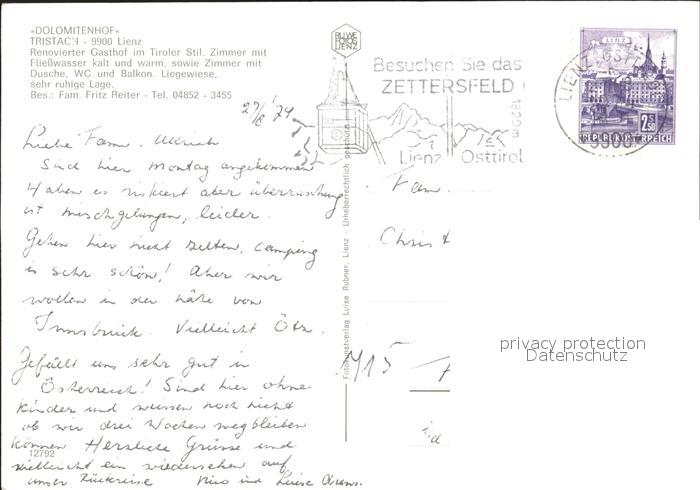 »DOLOMITENHOF«
TRISTACH - 9900 Lienz
Renovierter Gasthof im Tiroler Stil. Zimmer mit
Fließwasser kalt und warm, sowie Zimmer mit
Dusche, WC und Balkon. Liegewiese,
sehr ruhige Lage.
Bes.: Fam. Fritz Reiter - Tel. 04852 - 3455
27/8 '74
Liebe Fam. Ulrich
Sind hier Montag angekommen
Haben es riskiert aber überraschung
ist mischgelungen, leider.
Gehen hier nicht zelten, camping
is sehr schön! Aber wir
wollen in der nähe von
Innsbruck. Vielleicht Ötz.
Gefällt uns sehr gut in
Österreich! Sind hier ohne
kinder und wissen noch nicht
ob wir drei Wochen wegbleiben
können Herzliche Grüsse und
vielleicht ein wiedersehen auf
unser Rückreise
12792
Fotopostverlag Luise Rubner, Lienz - Urheberrechtlich geschützt
Besuchen Sie das
ZETTERSFELD
1820m
Lienz Osttirol
LIENZ
2.50
REPUBLIK ÖSTERREICH
9900
Fam.
Christ
privacy protection
Datenschutz